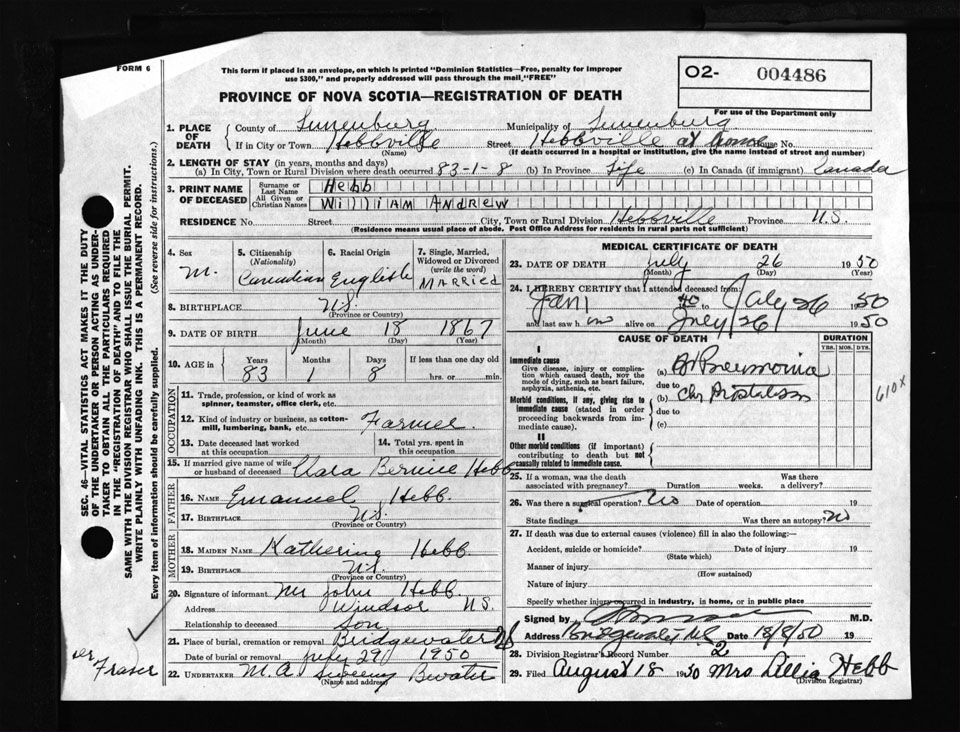 FORM 6
This form if placed in an envelope, on which is printed "Dominion Statistics—Free, penalty for improper
use $300," and properly addressed will pass through the mail "FREE"
O2- 004486
PROVINCE OF NOVA SCOTIA—REGISTRATION OF DEATH
For use of the Department only
1. PLACE OF DEATH
County of Lunenburg Municipality of Lunenburg
If in City or Town Hebbville Street Hebbville at home House No.
(Name) (If death occurred in a hospital or institution, give the name instead of street and number)
2. LENGTH OF STAY (in years, months and days)
(a) In City, Town or Rural Division where death occurred 83-1-8 (b) In Province Life (c) In Canada (if immigrant) Canada
3. PRINT NAME OF DECEASED
Surname or Last Name Hebb
All Given or Christian Names William Andrew
RESIDENCE No. Street City, Town or Rural Division Hebbville Province N.S.
(Residence means usual place of abode. Post Office Address for residents in rural parts not sufficient)
4. Sex M.
5. Citizenship (Nationality) Canadian
6. Racial Origin English
7. Single, Married, Widowed or Divorced (write the word) Married
8. BIRTHPLACE N.S.
(Province or Country)
9. DATE OF BIRTH June 18 1867
(Month) (Day) (Year)
10. AGE in Years 83 Months 1 Days 8 If less than one day old hrs. or min.
OCCUPATION
11. Trade, profession, or kind of work as spinner, teamster, office clerk, etc.
12. Kind of industry or business, as cotton-mill, lumbering, bank, etc. Farmer
13. Date deceased last worked at this occupation
14. Total yrs. spent in this occupation
15. If married give name of wife or husband of deceased Clara Bernice Hebb
FATHER
16. NAME Emanuel Hebb.
17. BIRTHPLACE N.S.
(Province or Country)
MOTHER
18. MAIDEN NAME Katherine Hebb.
19. BIRTHPLACE N.S.
(Province or Country)
20. Signature of informant Mr John Hebb.
Address Windsor N.S.
Relationship to deceased Son.
21. Place of burial, cremation or removal Bridgewater NS
Date of burial or removal July 29 1950
22. UNDERTAKER M.A Sweeny Bwater
MEDICAL CERTIFICATE OF DEATH
23. DATE OF DEATH July 26 1950
(Month) (Day) (Year)
24. I HEREBY CERTIFY that I attended deceased from:
Jan 1 40 to July 26 1950
and last saw him alive on July 26 1950
CAUSE OF DEATH
DURATION
YRS. MOS. DYS.
I
Immediate cause
Give disease, injury or complication which caused death, NOT the mode of dying, such as heart failure, asphyxia, asthenia, etc.
(a) Br Pneumonia
due to
Morbid conditions, if any, giving rise to immediate cause (stated in order proceeding backwards from immediate cause).
(b) Chr Prostatism
due to
(c)
610x
II
Other morbid conditions (if important) contributing to death but not causally related to immediate cause.
25. If a woman, was the death associated with pregnancy? Duration weeks. Was there a delivery?
26. Was there a surgical operation? No Date of operation 19
State findings Was there an autopsy? No
27. If death was due to external causes (violence) fill in also the following:
Accident, suicide or homicide? Date of injury 19
(State which)
Manner of injury
(How sustained)
Nature of injury
Specify whether injury occurred in industry, in home, or in public place
Signed by M.D.
Address Bridgewater N.S. Date 18/8/50 19
28. Division Registrar's Record Number 2
29. Filed August 18 1950 Mrs Lillia Hebb
(Division Registrar)
SEC. 46—VITAL STATISTICS ACT MAKES IT THE DUTY
OF THE UNDERTAKER OR PERSON ACTING AS UNDER-
TAKER TO OBTAIN ALL THE PARTICULARS REQUIRED
IN THE "REGISTRATION OF DEATH" AND TO FILE THE
SAME WITH THE DIVISION REGISTRAR WHO SHALL ISSUE THE BURIAL PERMIT.
WRITE PLAINLY WITH UNFADING INK. THIS IS A PERMANENT RECORD.
Every item of information should be carefully supplied. (See reverse side for instructions.)
per Fraser